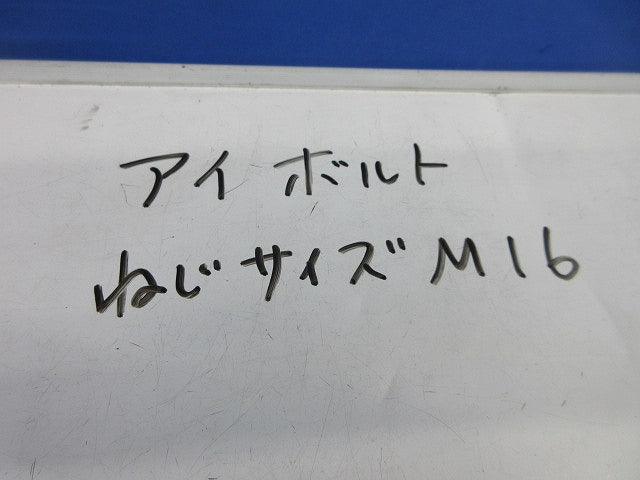 アイボルト
ねじサイズM16